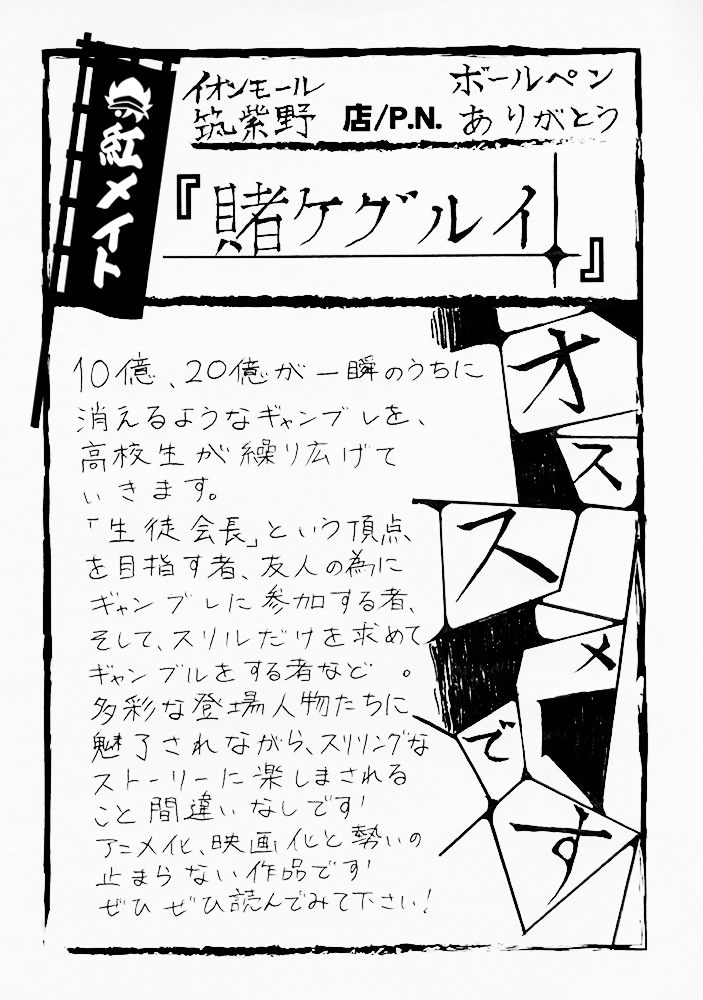 紅メイト
イオンモール
筑紫野 店/P.N. ボールペン
ありがとう
『賭ケグルイ』
10億、20億が一瞬のうちに
消えるようなギャンブルを、
高校生が繰り広げて
いきます。
「生徒会長」という頂点
を目指す者、友人の為に
ギャンブルに参加する者、
そして、スリルだけを求めて
ギャンブルをする者など。
多彩な登場人物たちに
魅了されながら、スリリングな
ストーリーに楽しまされる
こと間違いなしです!
アニメ化、映画化と勢いの
止まらない作品です!
ぜひぜひ読んでみて下さい!
オススメです